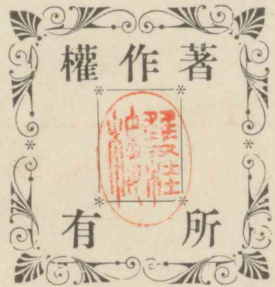 著作權
所有